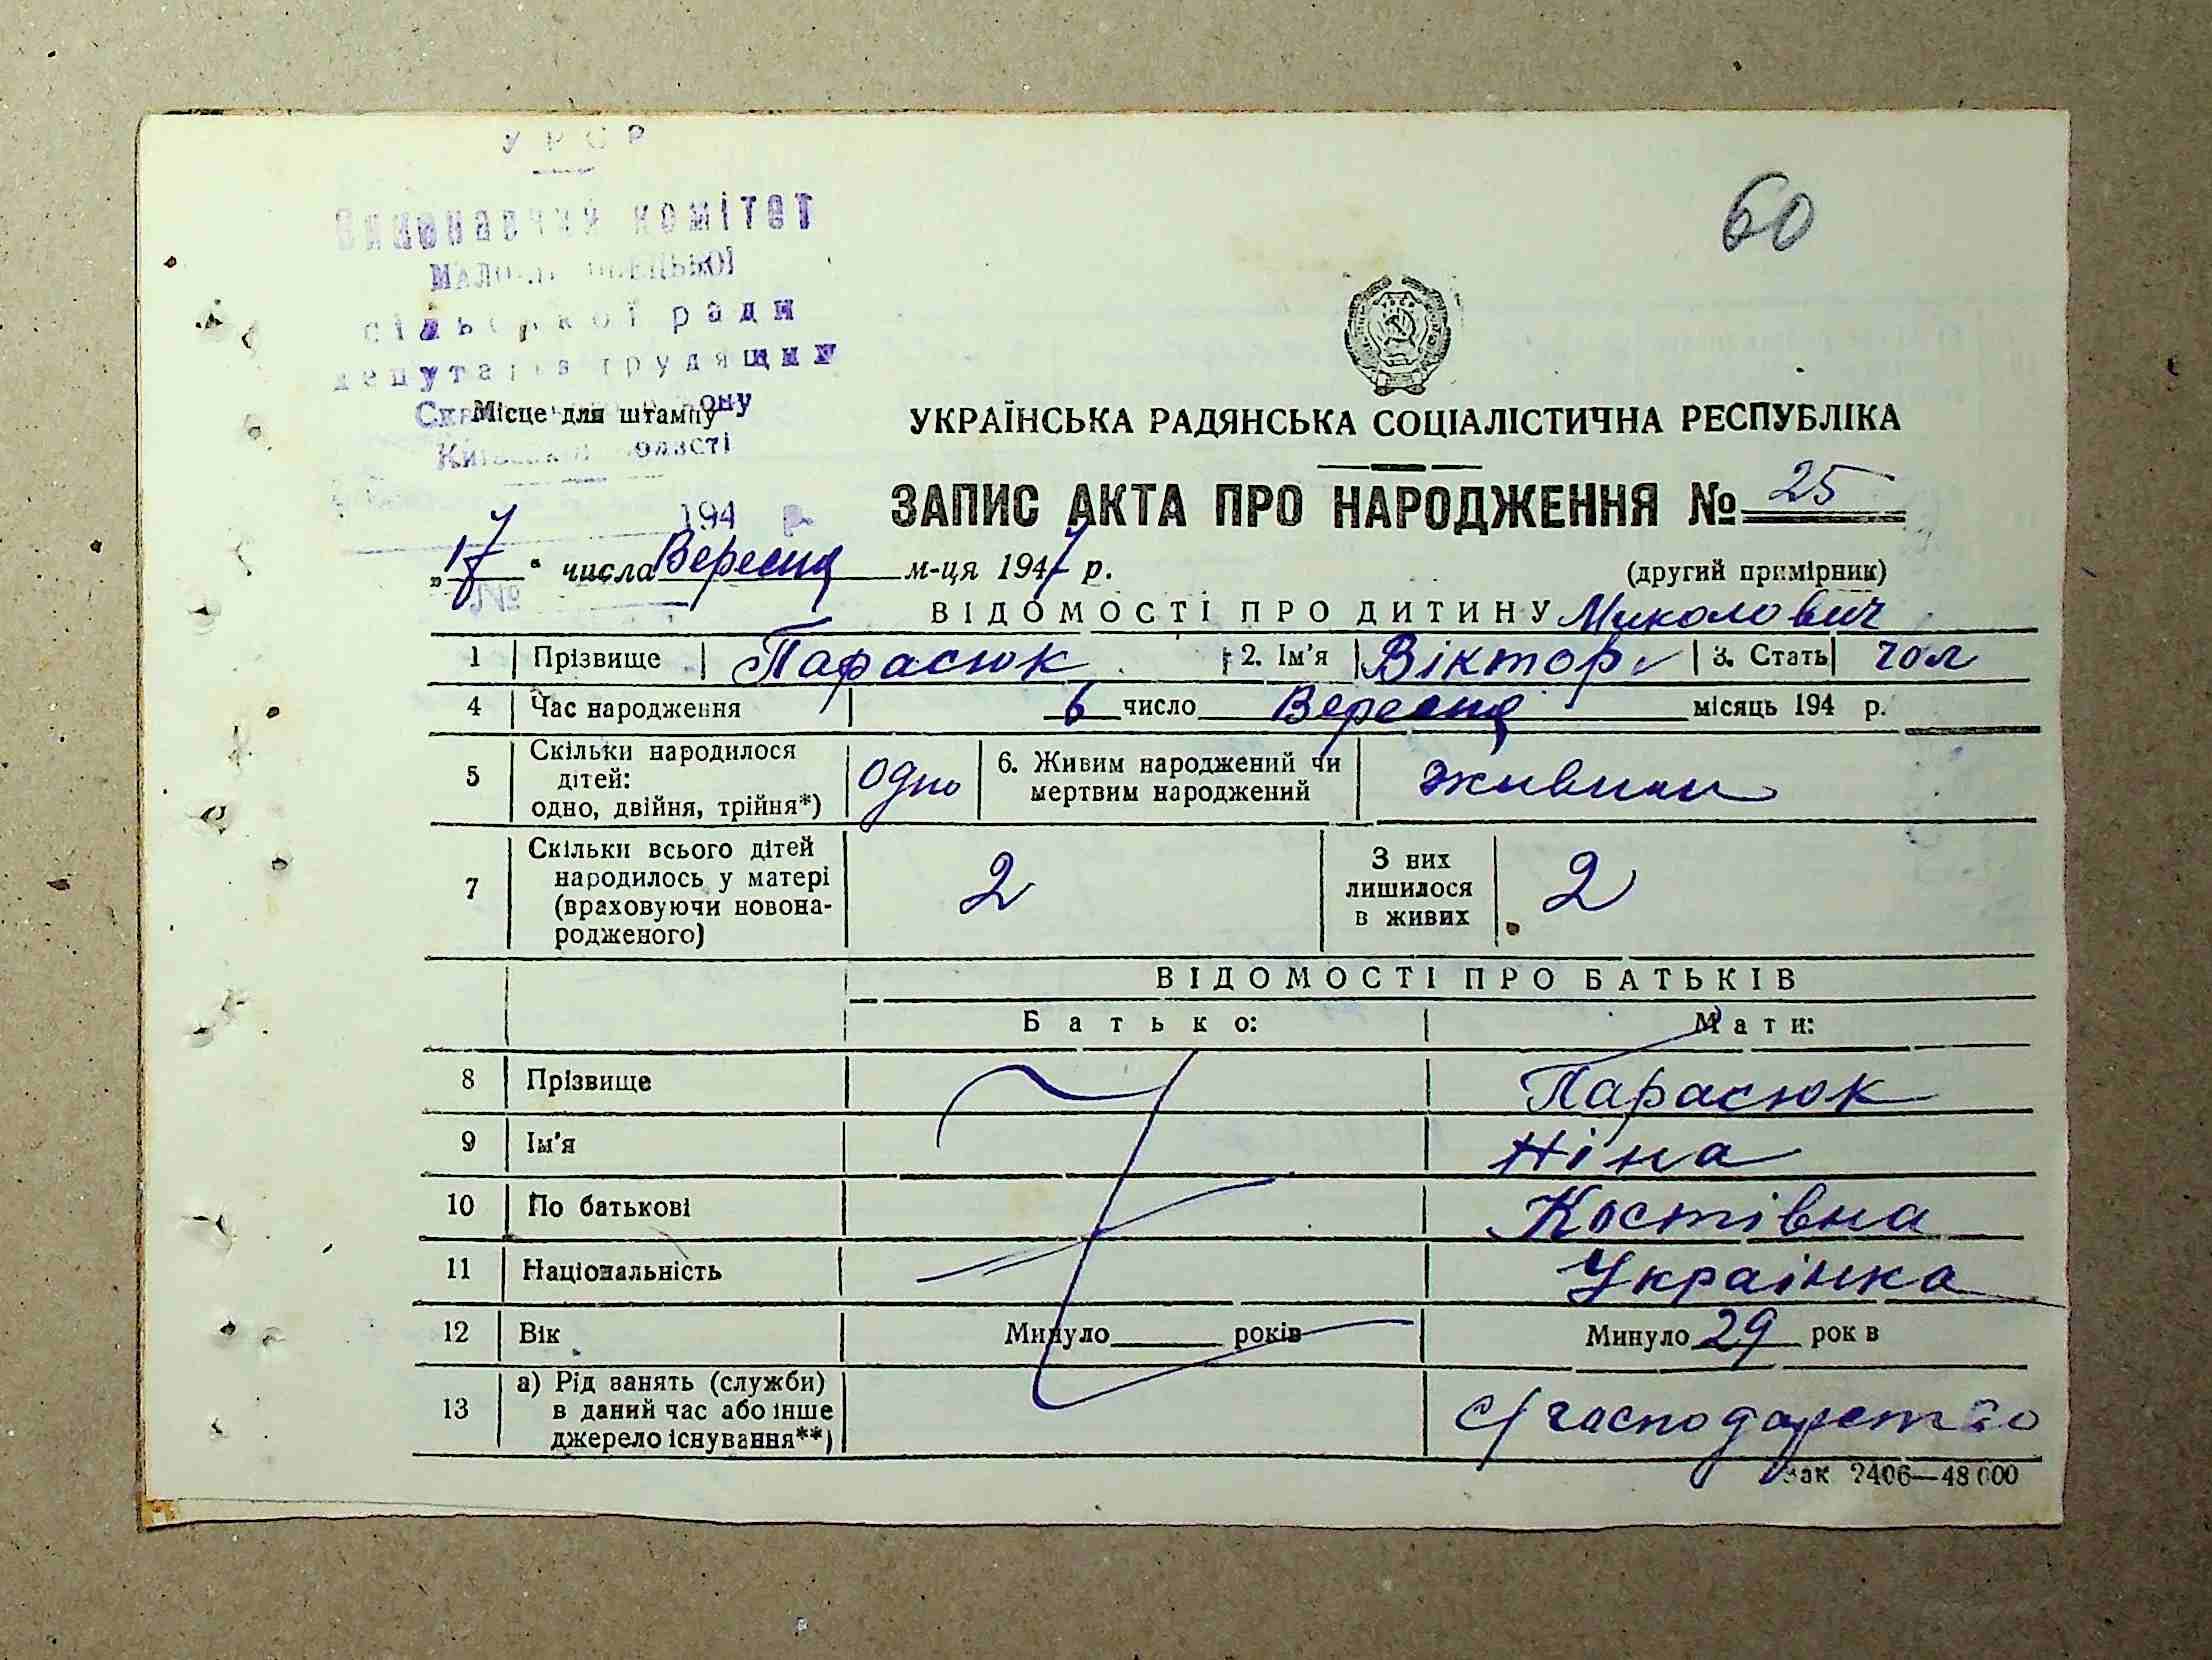 УРСР
60
Виконавчий комітет
сільської ради
депутатів трудящих
Місце для штампу
Київської області
194 р
УКРАЇНСЬКА РАДЯНСЬКА СОЦІАЛІСТИЧНА РЕСПУБЛІКА
ЗАПИС АКТА ПРО НАРОДЖЕННЯ № 25
„17“ числа Вересня м-ця 1947 р.
(другий примірник)
ВІДОМОСТІ ПРО ДИТИНУ Миколович
1 Прізвище Парасюк 2. Ім'я Віктор 3. Стать чол
4 Час народження 6 число Вересня місяць 194 р.
5 Скільки народилося дітей: одно, двійня, трійня*) одно 6. Живим народжений чи мертвим народжений живим
7 Скільки всього дітей народилось у матері (враховуючи новонародженого) 2 З них лишилося в живих 2
ВІДОМОСТІ ПРО БАТЬКІВ
Батько: Мати:
8 Прізвище Парасюк
9 Ім'я Ніна
10 По батькові Костівна
11 Національність Украінка
12 Вік Минуло років Минуло 29 рок в
13 а) Рід занять (служби) в даний час або інше джерело існування**) с/господарство
Зак 2406—48 000